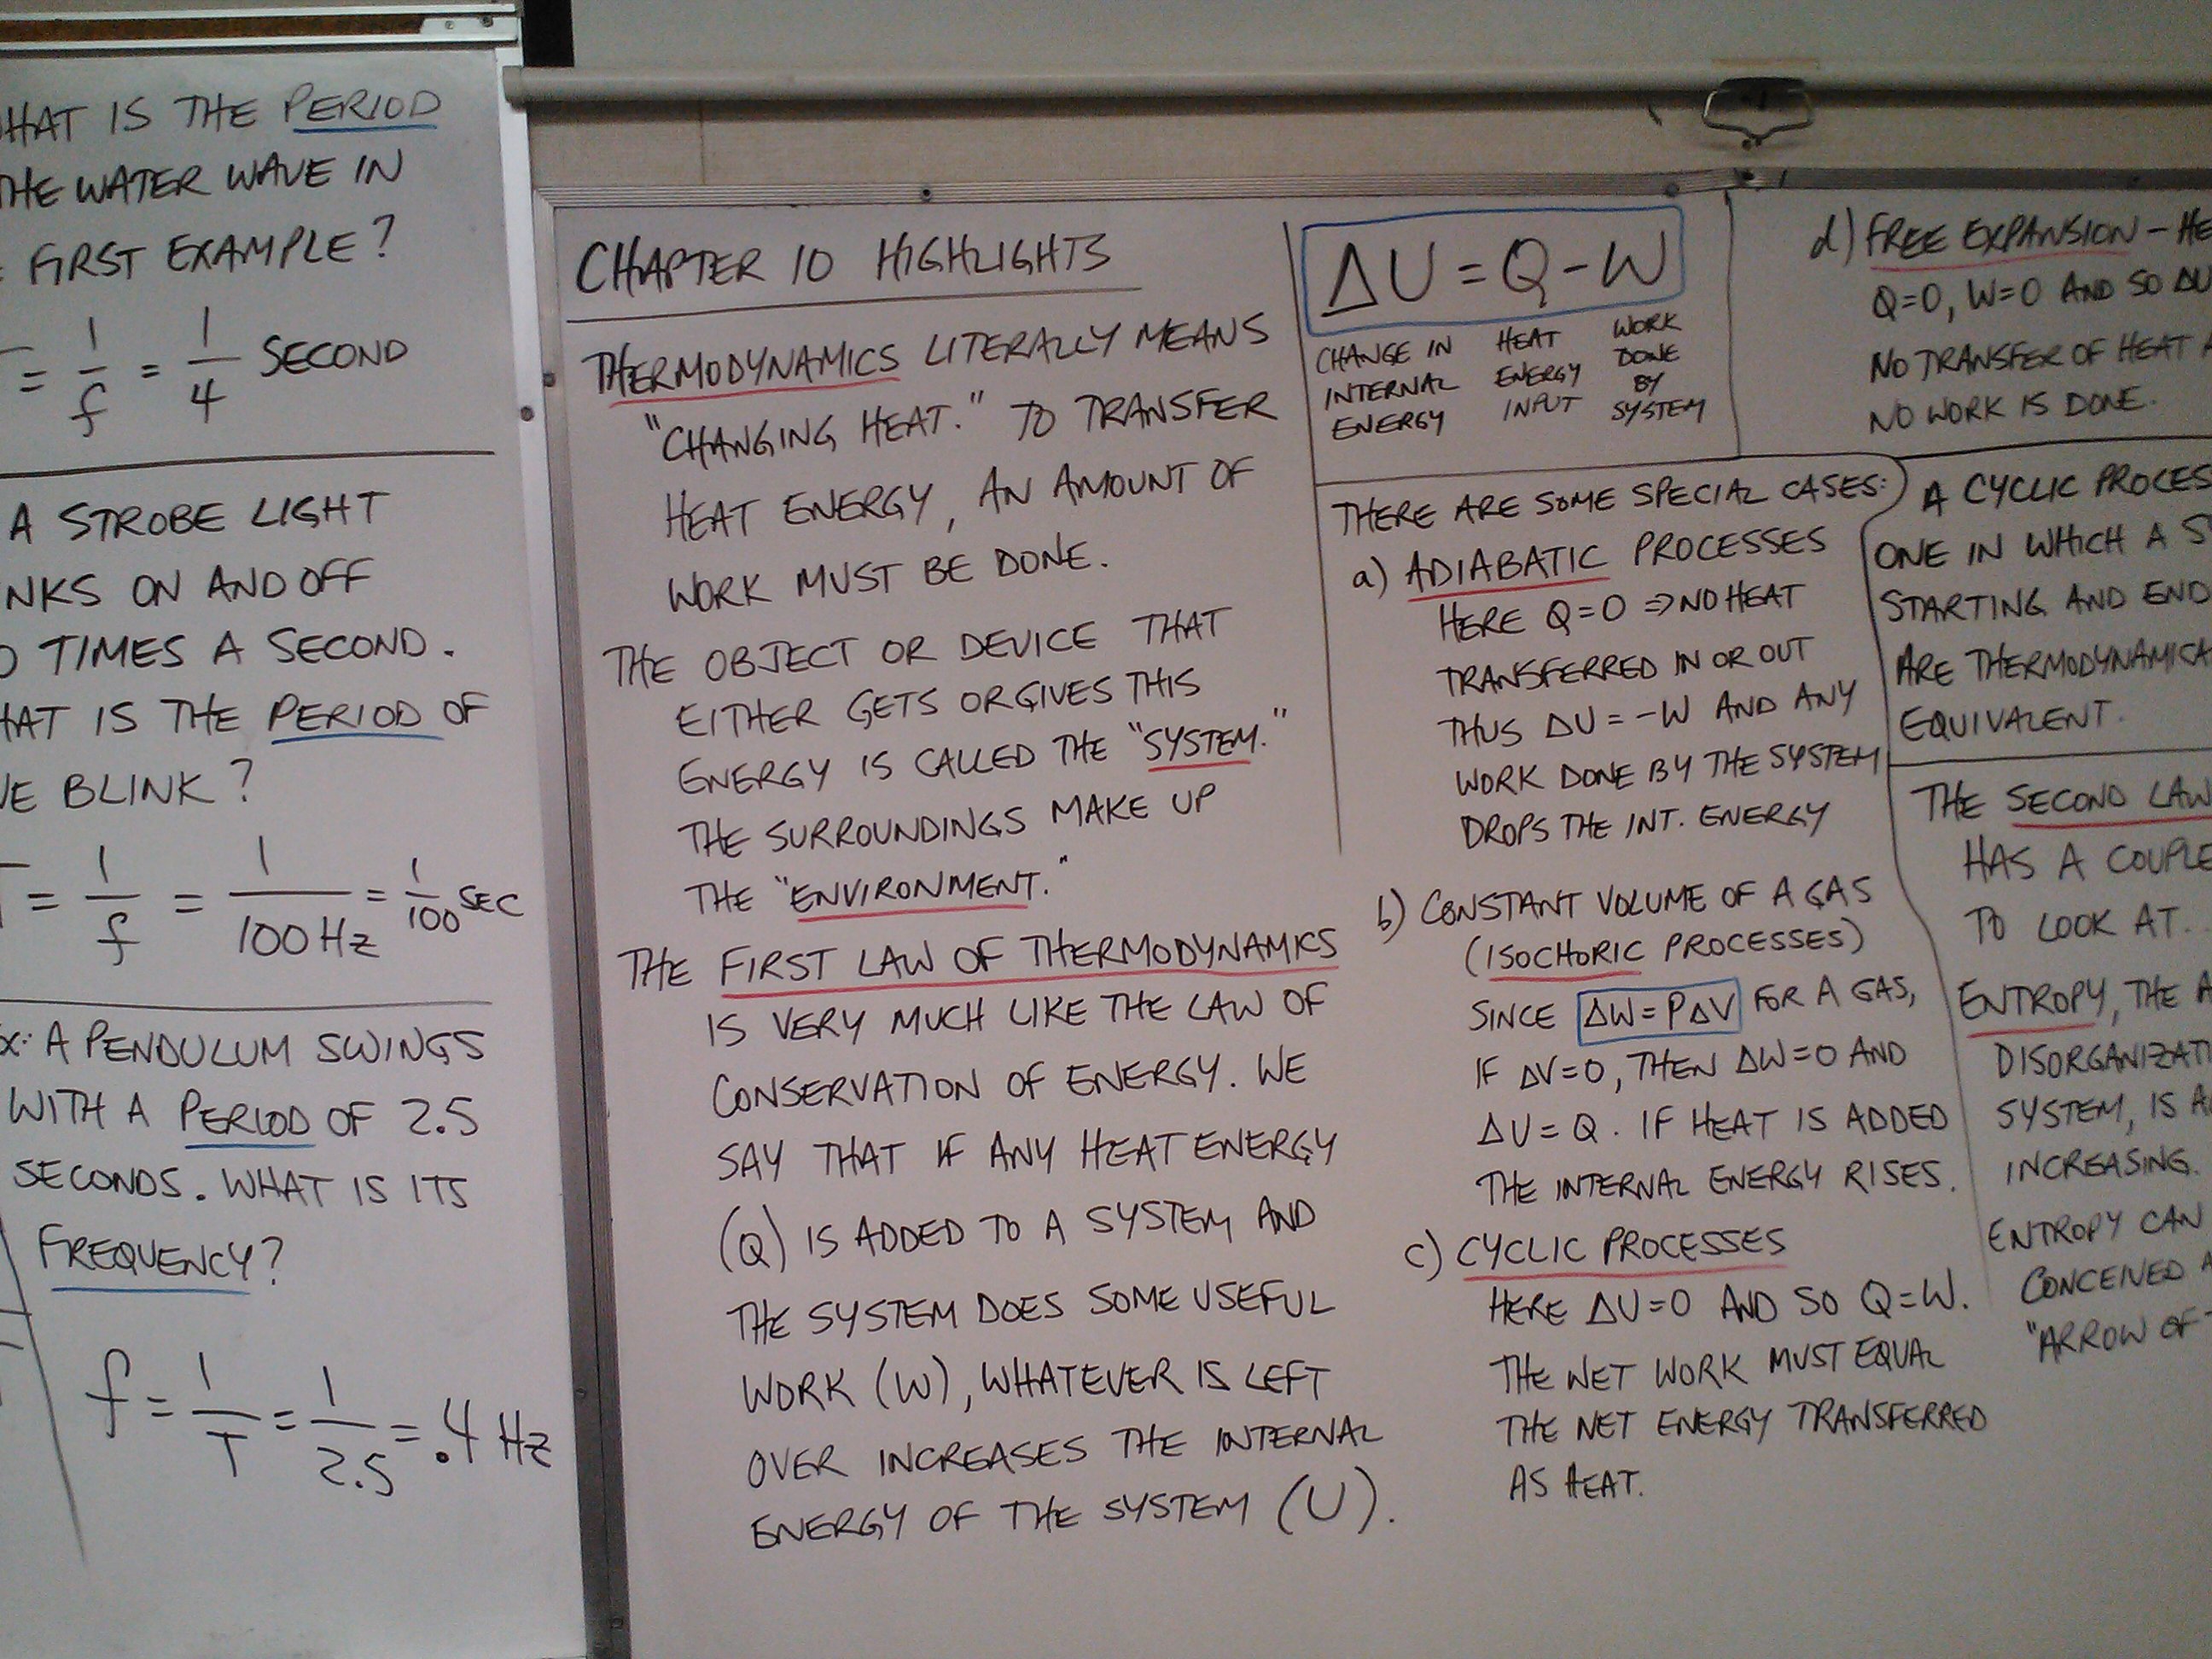 WHAT IS THE PERIOD
THE WATER WAVE IN
FIRST EXAMPLE?
= 1/f = 1/4 SECOND
A STROBE LIGHT
NKS ON AND OFF
TIMES A SECOND.
HAT IS THE PERIOD OF
VE BLINK?
= 1/f = 1/100 Hz = 1/100 SEC
X: A PENDULUM SWINGS
WITH A PERIOD OF 2.5
SECONDS. WHAT IS ITS
FREQUENCY?
f = 1/T = 1/2.5 = .4 Hz
CHAPTER 10 HIGHLIGHTS
THERMODYNAMICS LITERALLY MEANS
"CHANGING HEAT." TO TRANSFER
HEAT ENERGY, AN AMOUNT OF
WORK MUST BE DONE.
THE OBJECT OR DEVICE THAT
EITHER GETS OR GIVES THIS
ENERGY IS CALLED THE "SYSTEM."
THE SURROUNDINGS MAKE UP
THE "ENVIRONMENT."
THE FIRST LAW OF THERMODYNAMICS
IS VERY MUCH LIKE THE LAW OF
CONSERVATION OF ENERGY. WE
SAY THAT IF ANY HEAT ENERGY
(Q) IS ADDED TO A SYSTEM AND
THE SYSTEM DOES SOME USEFUL
WORK (W), WHATEVER IS LEFT
OVER INCREASES THE INTERNAL
ENERGY OF THE SYSTEM (U).
ΔU = Q - W
CHANGE IN INTERNAL ENERGY
HEAT ENERGY INPUT
WORK DONE BY SYSTEM
THERE ARE SOME SPECIAL CASES:
a) ADIABATIC PROCESSES
HERE Q=0 => NO HEAT
TRANSFERRED IN OR OUT
THUS ΔU = -W AND ANY
WORK DONE BY THE SYSTEM
DROPS THE INT. ENERGY
b) CONSTANT VOLUME OF A GAS
(ISOCHORIC PROCESSES)
SINCE ΔW = PΔV FOR A GAS,
IF ΔV=0, THEN ΔW=0 AND
ΔU = Q. IF HEAT IS ADDED
THE INTERNAL ENERGY RISES.
c) CYCLIC PROCESSES
HERE ΔU=0 AND SO Q=W.
THE NET WORK MUST EQUAL
THE NET ENERGY TRANSFERRED
AS HEAT.
d) FREE EXPANSION - HE
Q=0, W=0 AND SO ΔU
NO TRANSFER OF HEAT
NO WORK IS DONE.
A CYCLIC PROCES
ONE IN WHICH A S
STARTING AND END
ARE THERMODYNAMICA
EQUIVALENT.
THE SECOND LAW
HAS A COUPLE
TO LOOK AT..
ENTROPY, THE A
DISORGANIZATI
SYSTEM, IS A
INCREASING.
ENTROPY CAN
CONCEIVED A
"ARROW OF